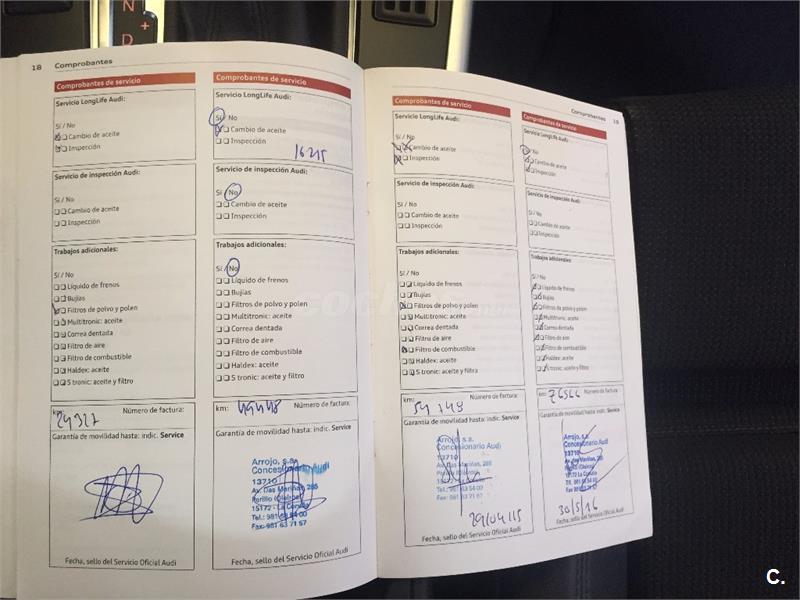 N
+
D
18 Comprobantes
Comprobantes de servicio
Servicio LongLife Audi:
Sí / No
Cambio de aceite
Inspección
Servicio de inspección Audi:
Sí / No
Cambio de aceite
Inspección
Trabajos adicionales:
Sí / No
Líquido de frenos
Bujías
Filtros de polvo y polen
Multitronic: aceite
Correa dentada
Filtro de aire
Filtro de combustible
Haldex: aceite
S tronic: aceite y filtro
km: Número de factura:
Garantía de movilidad hasta: indic. Service
Fecha, sello del Servicio Oficial Audi
Comprobantes de servicio
Servicio LongLife Audi:
Sí / No
Cambio de aceite
Inspección
16215
Servicio de inspección Audi:
Sí / No
Cambio de aceite
Inspección
Trabajos adicionales:
Sí / No
Líquido de frenos
Bujías
Filtros de polvo y polen
Multitronic: aceite
Correa dentada
Filtro de aire
Filtro de combustible
Haldex: aceite
S tronic: aceite y filtro
km: Número de factura:
Garantía de movilidad hasta: indic. Service
Arrojo, s.a.
Concesionario Audi
13710
Av. Das Mariñas, 285
Perillo (Oleiros)
15172 - La Coruña
Tel.: 981 63 54 00
Fax: 981 63 71 67
Fecha, sello del Servicio Oficial Audi
Comprobantes de servicio
Servicio LongLife Audi:
Sí / No
Cambio de aceite
Inspección
Servicio de inspección Audi:
Sí / No
Cambio de aceite
Inspección
Trabajos adicionales:
Sí / No
Líquido de frenos
Bujías
Filtros de polvo y polen
Multitronic: aceite
Correa dentada
Filtro de aire
Filtro de combustible
Haldex: aceite
S tronic: aceite y filtro
km: Número de factura:
Garantía de movilidad hasta: indic. Service
Arrojo, s.a.
Concesionario Audi
13710
Av. Das Mariñas, 285
Perillo (Oleiros)
15172 - La Coruña
Tel.: 981 63 54 00
Fax: 981 63 71 67
29/04/15
Fecha, sello del Servicio Oficial Audi
Comprobantes 19
Comprobantes de servicio
Servicio LongLife Audi:
No
Cambio de aceite
Inspección
Servicio de inspección Audi:
Sí / No
Cambio de aceite
Inspección
Trabajos adicionales:
Sí / No
Líquido de frenos
Bujías
Filtros de polvo y polen
Multitronic: aceite
Correa dentada
Filtro de aire
Filtro de combustible
Haldex: aceite
S tronic: aceite y filtro
km: Número de factura:
Garantía de movilidad hasta: indic. Service
Arrojo, s.a.
Concesionario Audi
13710
Av. Das Mariñas, 285
Perillo (Oleiros)
15172 La Coruña
Tel.: 981 63 54 00
Fax: 981 63 71 67
30/5/16
Fecha, sello del Servicio Oficial Audi
C.